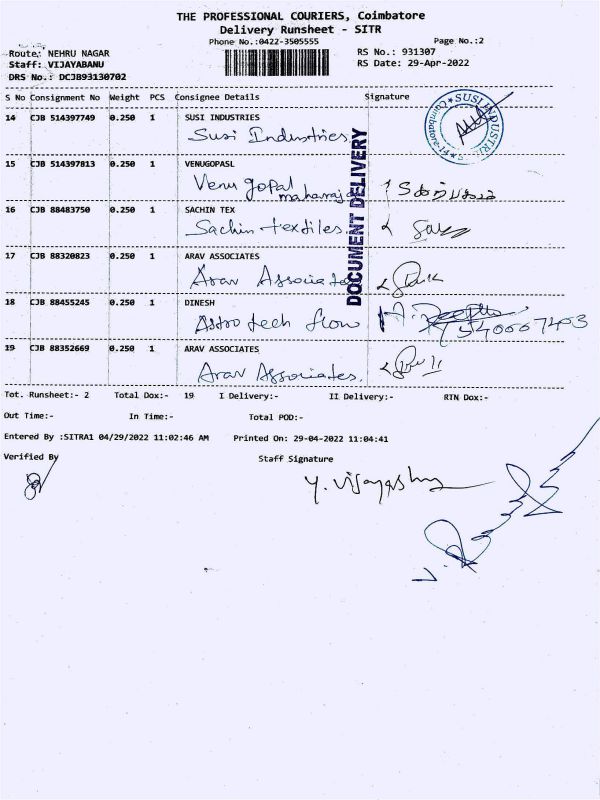 THE PROFESSIONAL COURIERS, Coimbatore
Delivery Runsheet - SITR
Phone No.:0422-3505555 Page No.:2
Route: NEHRU NAGAR RS No.: 931307
Staff: VIJAYABANU RS Date: 29-Apr-2022
DRS No.: DCJB93130702
S No Consignment No Weight PCS Consignee Details Signature
14 CJB 514397749 0.250 1 SUSI INDUSTRIES
Susi Industries
SUSI INDUSTRIES
Coimbatore-14
15 CJB 514397813 0.250 1 VENUGOPASL
Venu gopal
maharaja
16 CJB 88483750 0.250 1 SACHIN TEX
Sachin textiles.
17 CJB 88320823 0.250 1 ARAV ASSOCIATES
Arav Associates
18 CJB 88455245 0.250 1 DINESH
Astro tech flow
19 CJB 88352669 0.250 1 ARAV ASSOCIATES
Arav Associates.
DOCUMENT DELIVERY
Tot. Runsheet:- 2 Total Dox:- 19 I Delivery:- II Delivery:- RTN Dox:-
Out Time:- In Time:- Total POD:-
Entered By :SITRA1 04/29/2022 11:02:46 AM Printed On: 29-04-2022 11:04:41
Verified By Staff Signature